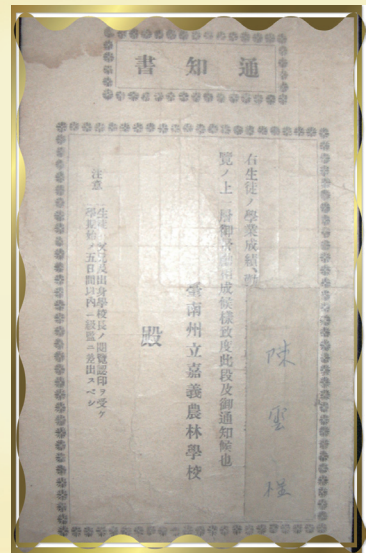 通知書
陳雲
右生徒ノ學業成績
覽ノ上一層御 成候樣致度此段及御通知候也
臺南州立嘉義農林學校
殿
注意
生徒ノ父兄及出身學校長ノ閲覽認印ヲ受ケ
學期始ノ五日間以内ニ級監ニ差出スベシ